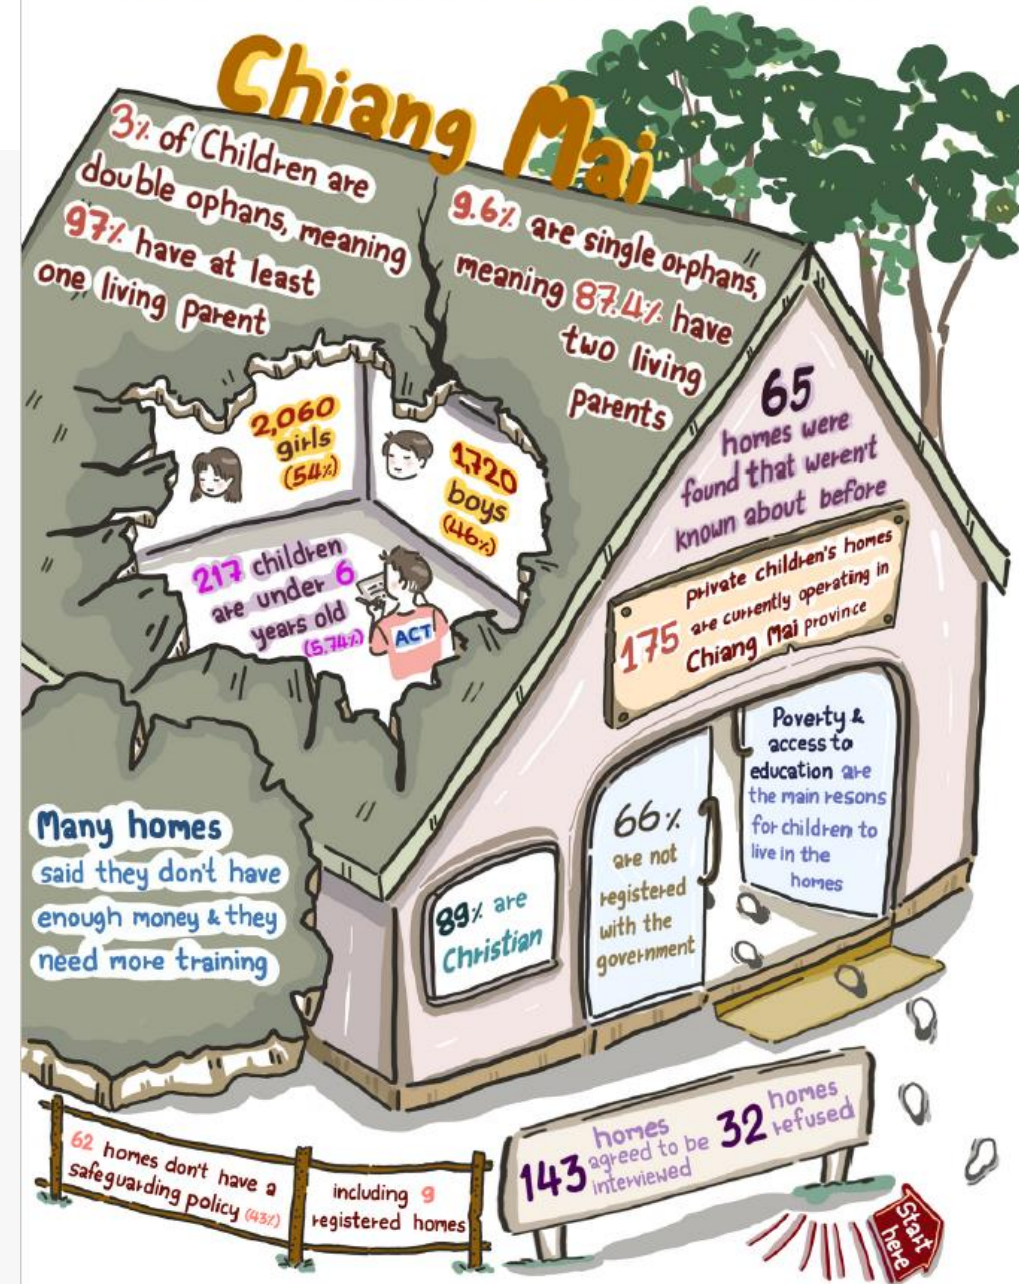 Chiang Mai
3% of Children are
double ophans, meaning
97% have at least
one living parent
9.6% are single orphans,
meaning 87.4% have
two living
parents
2,060
girls
(54%)
1,720
boys
(46%)
217 children
are under 6
years old
(5.74%)
ACT
65
homes were
found that weren't
known about before
175 private children's homes
are currently operating in
Chiang Mai province
Poverty &
access to
education are
the main resons
for children to
live in the
homes
66%
are not
registered
with the
government
89% are
Christian
Many homes
said they don't have
enough money & they
need more training
62 homes don't have a
safeguarding policy (43%)
including 9
registered homes
143 homes
agreed to be
interviewed
32 homes
refused
Start
here